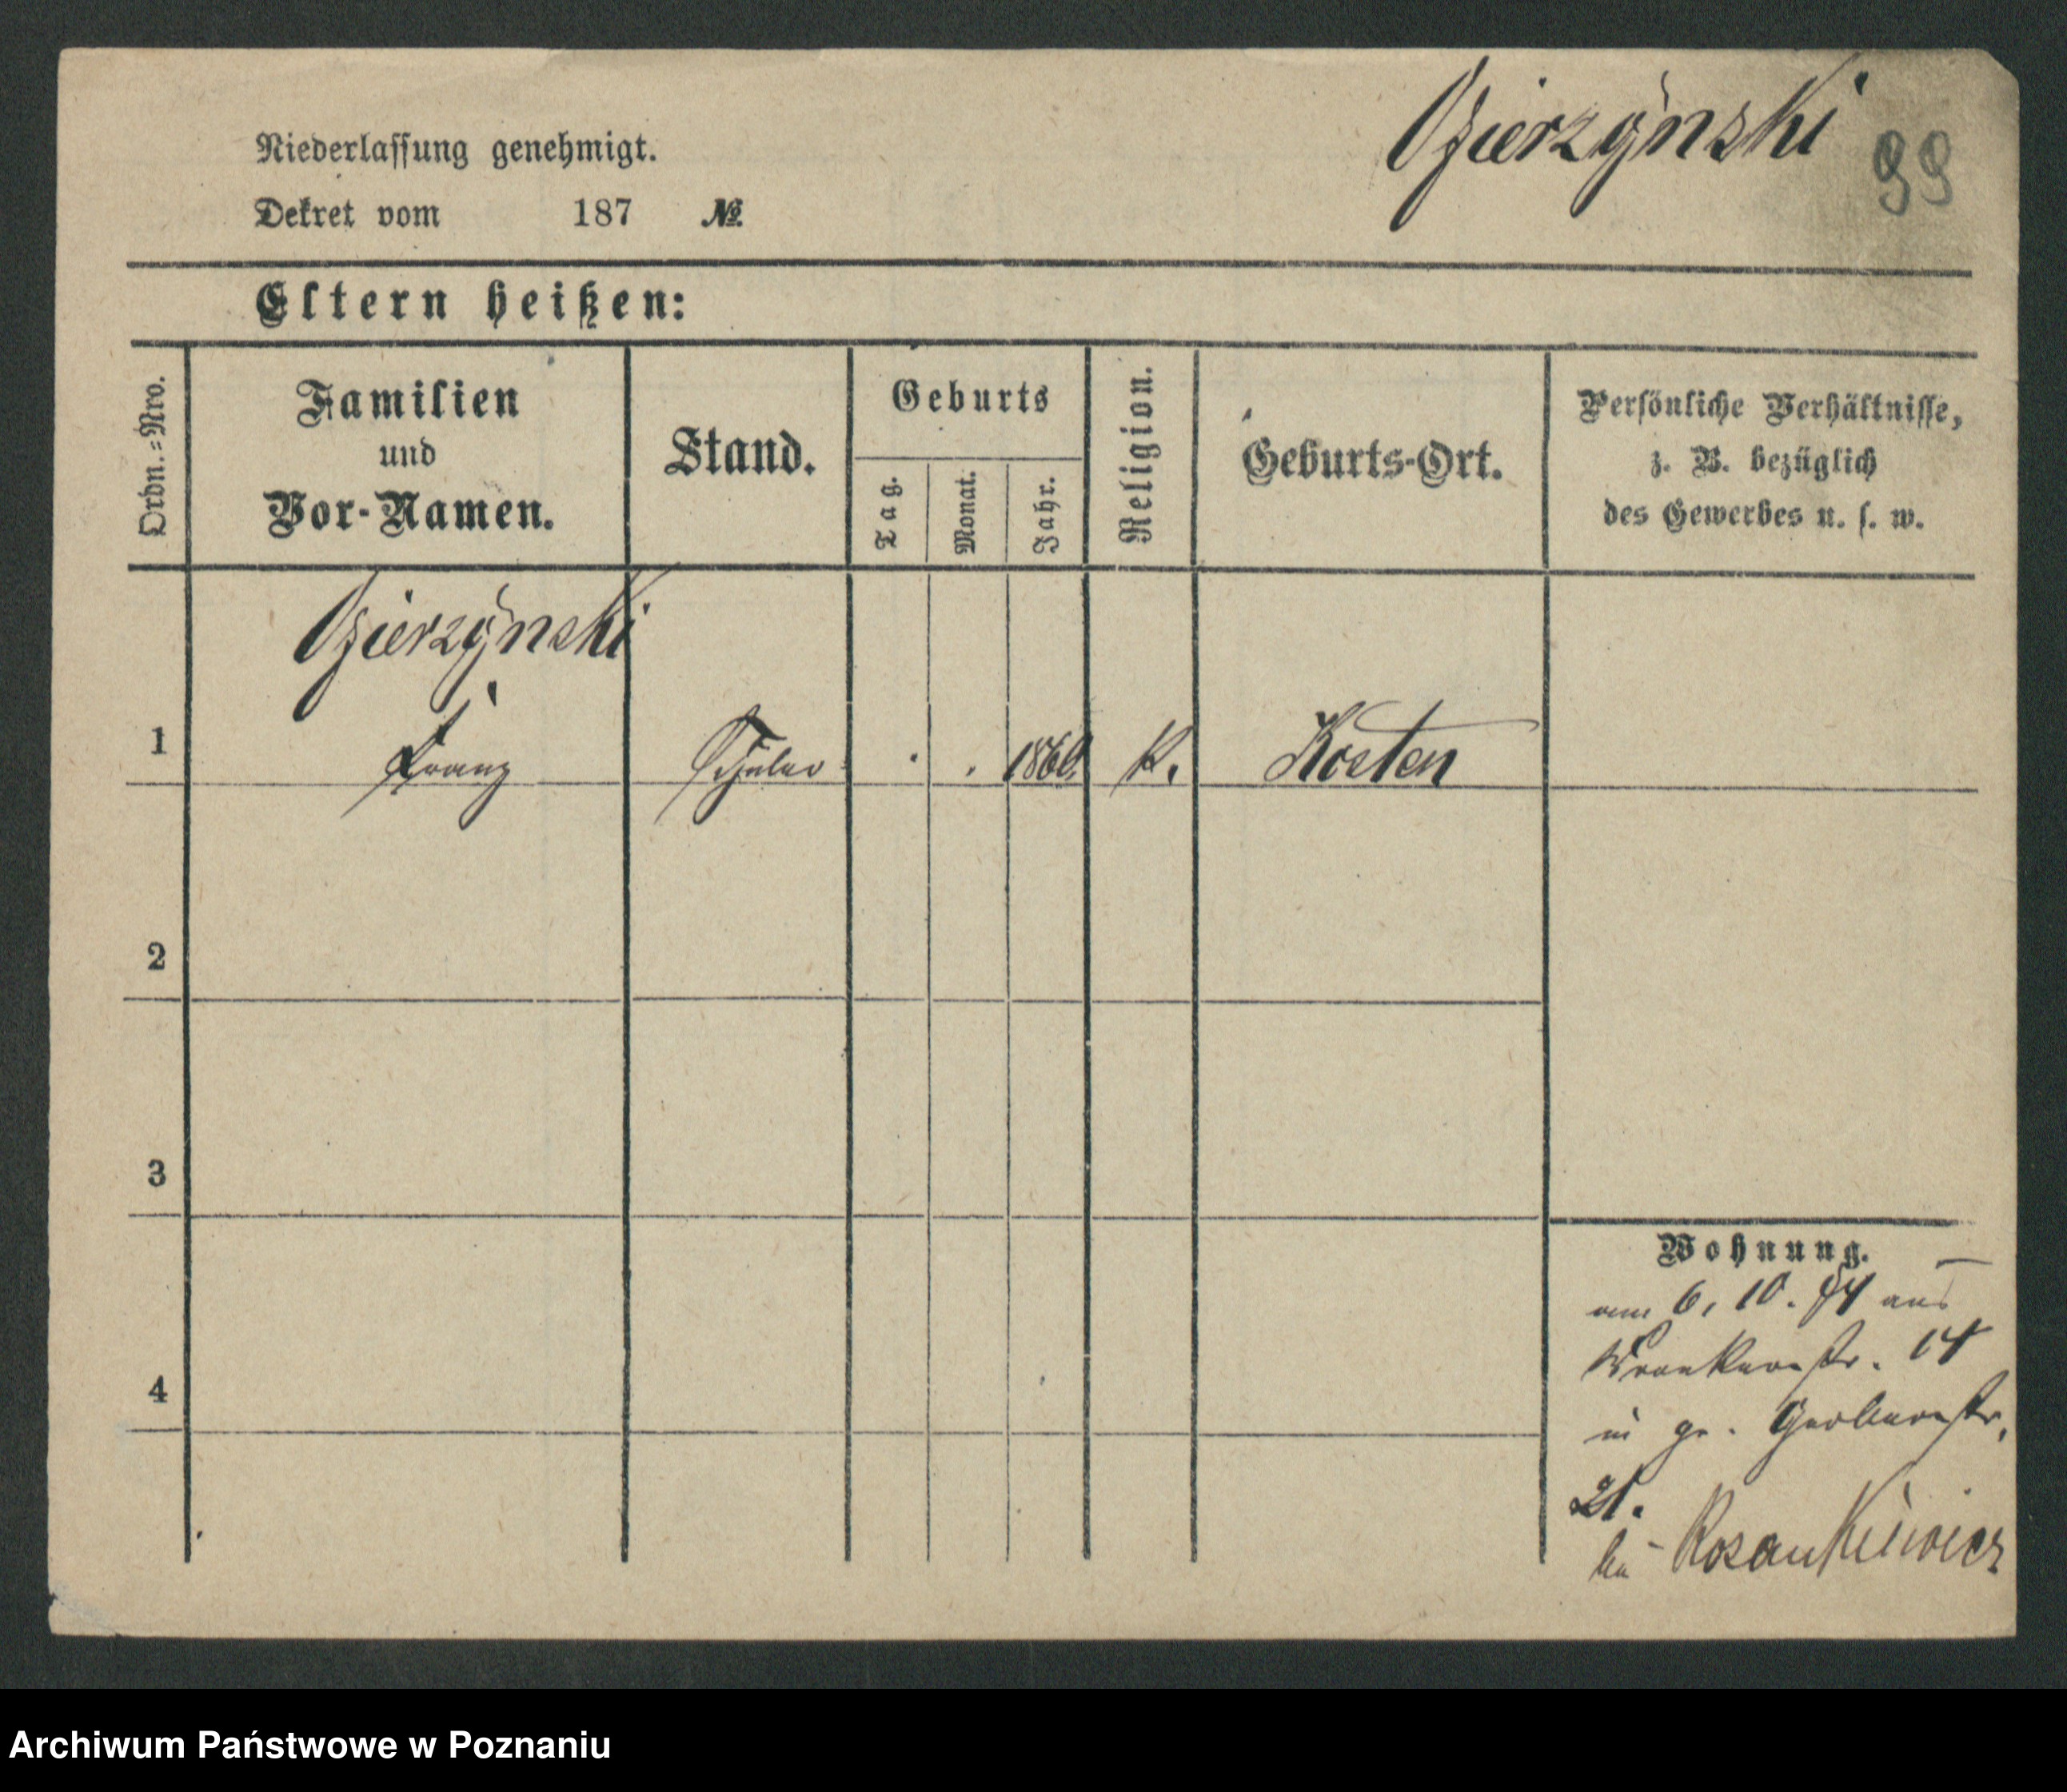 Ozierzynski
99
Niederlassung genehmigt.
Dekret vom 187 №
Eltern heißen:
Ordn.=Nro.
Familien
und
Vor-Namen.
Stand.
Geburts
Tag.
Monat.
Jahr.
Religion.
Geburts-Ort.
Persönliche Verhältnisse,
z. B. bezüglich
des Gewerbes u. s. w.
Ozierzynski
1 Franz Schüler . . 1860. K. Kosten
2
3
4
Wohnung.
am 6, 10. 74 aus
Wronkerstr. 14
in gr. Gerberstr,
21.
bei Rosankiewicz
Archiwum Państwowe w Poznaniu